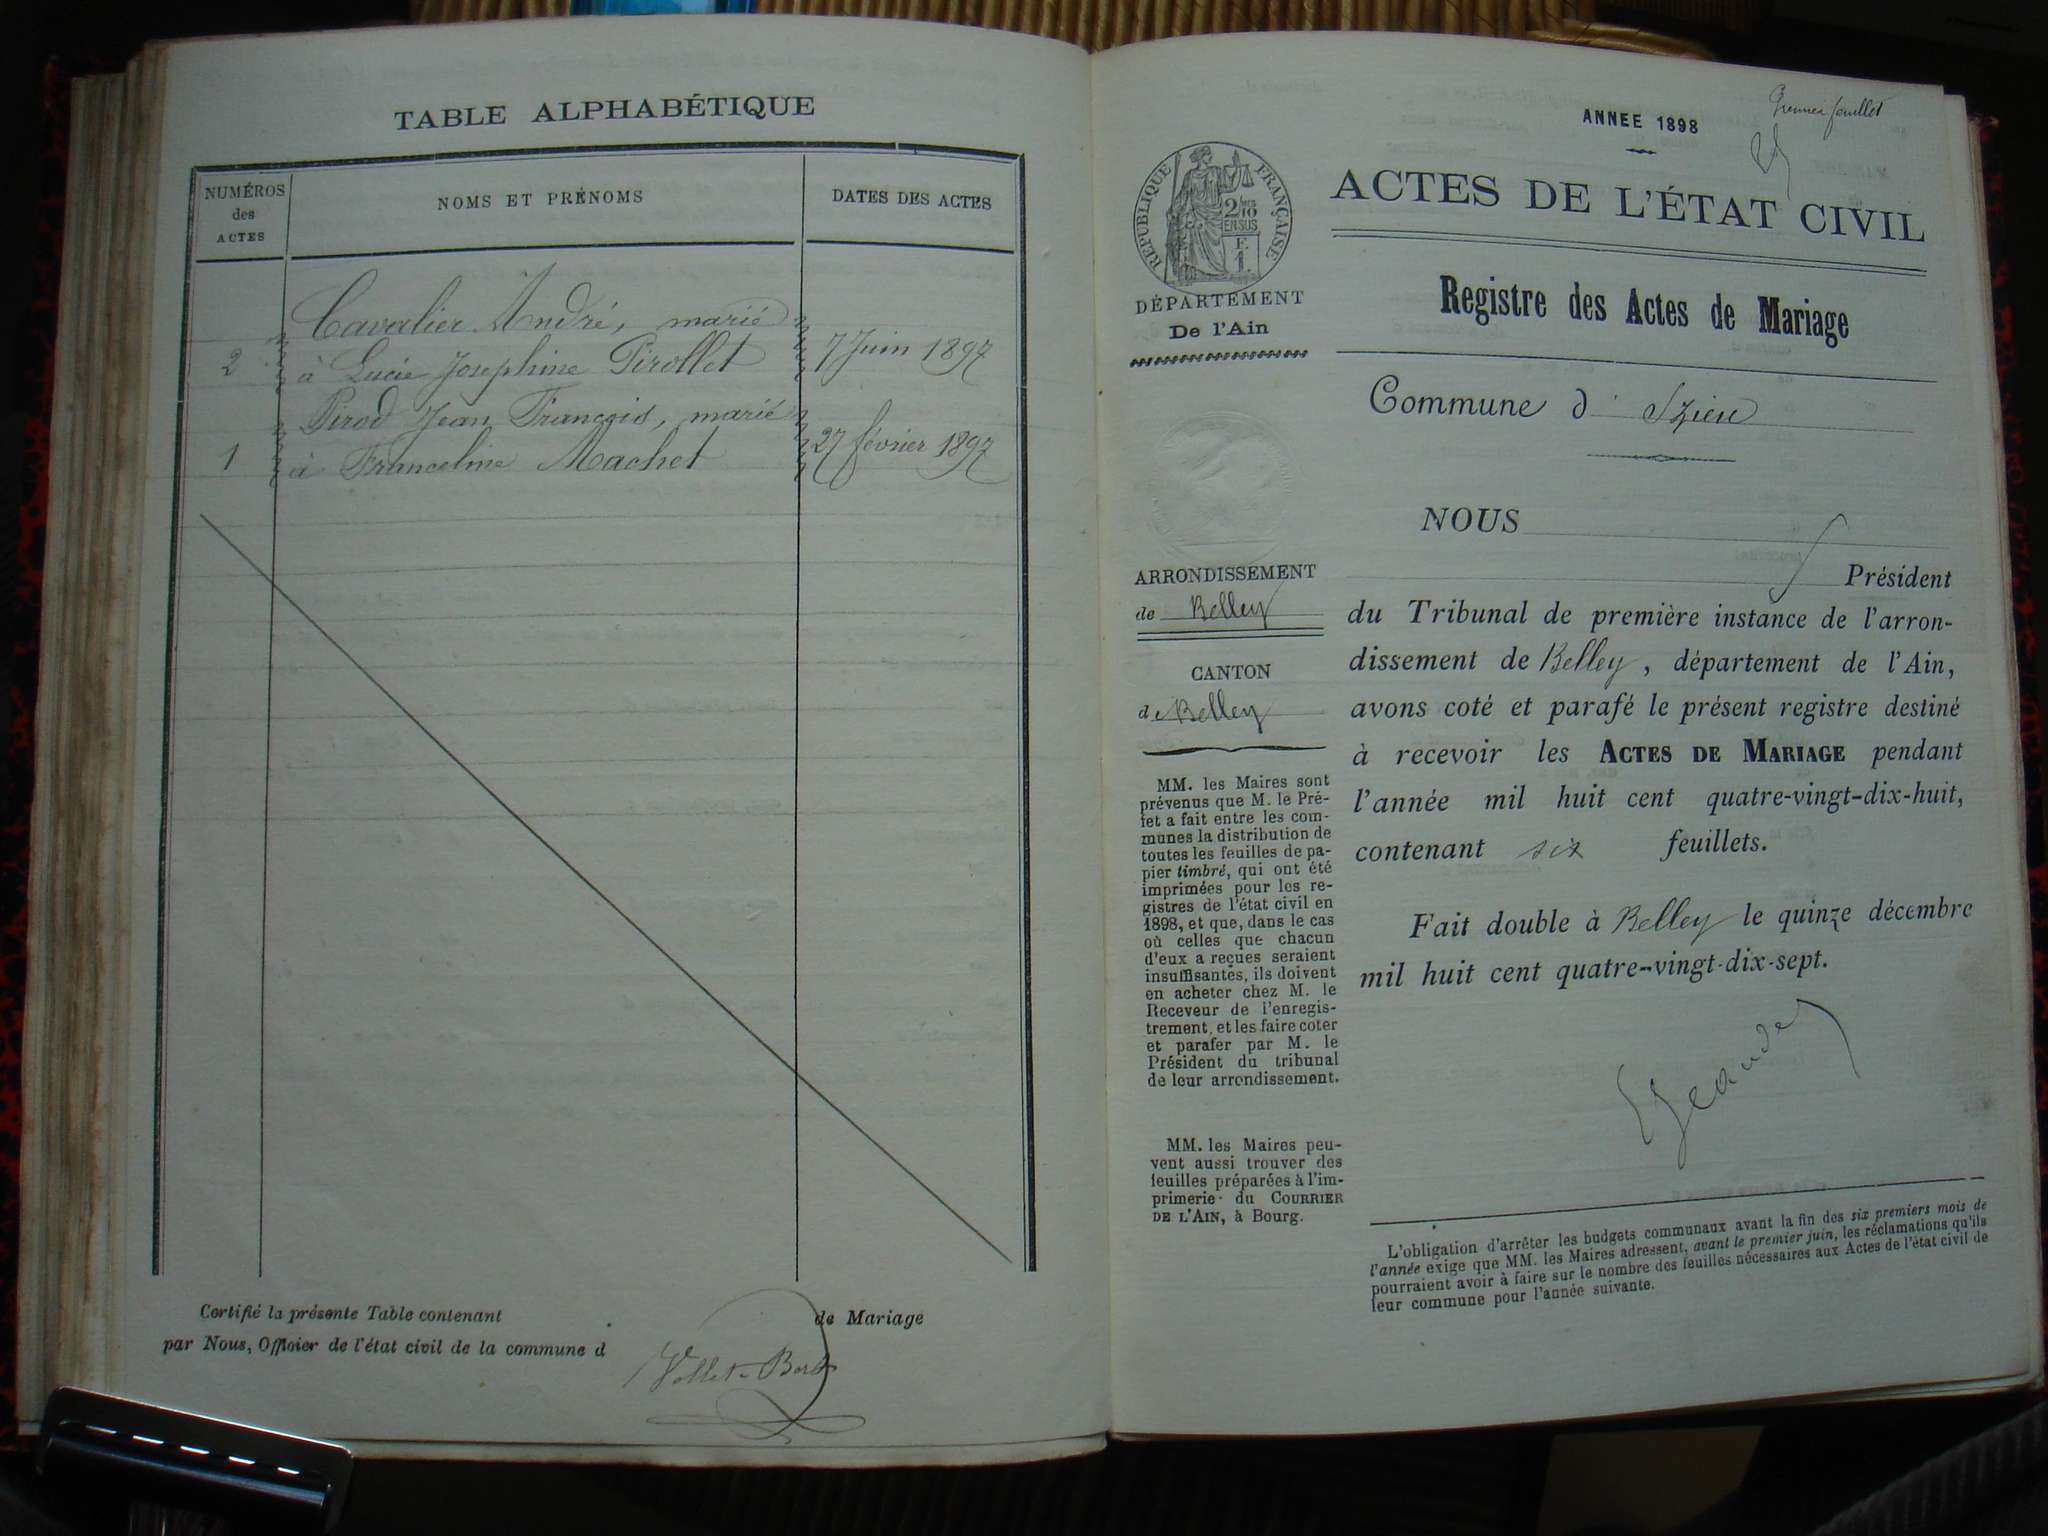 TABLE ALPHABÉTIQUE
NUMÉROS
des
ACTES
NOMS ET PRÉNOMS
DATES DES ACTES
Cavalier André, marié
2 à Lucie Josephine Pirollet 7 Juin 1897
Pirod Jean François, marié
1 à Franceline Machet 27 février 1897
Certifié la présente Table contenant de Mariage
par Nous, Officier de l'état civil de la commune d
ANNEE 1898
Premier feuillet
RÉPUBLIQUE FRANÇAISE
2/10
EN SUS
F.
1.
DÉPARTEMENT
De l'Ain
ACTES DE L'ÉTAT CIVIL
Registre des Actes de Mariage
Commune d' Izieu
ARRONDISSEMENT
de Belley
CANTON
de Belley
MM. les Maires sont
prévenus que M. le Pré-
fet a fait entre les com-
munes la distribution de
toutes les feuilles de pa-
pier timbré, qui ont été
imprimées pour les re-
gistres de l'état civil en
1898, et que, dans le cas
où celles que chacun
d'eux a reçues seraient
insuffisantes, ils doivent
en acheter chez M. le
Receveur de l'enregis-
trement, et les faire coter
et parafer par M. le
Président du tribunal
de leur arrondissement.
MM. les Maires peu-
vent aussi trouver des
feuilles préparées à l'im-
primerie du COURRIER
DE L'AIN, à Bourg.
NOUS
Président
du Tribunal de première instance de l'arron-
dissement de Belley, département de l'Ain,
avons coté et parafé le présent registre destiné
à recevoir les ACTES DE MARIAGE pendant
l'année mil huit cent quatre-vingt-dix-huit,
contenant six feuillets.
Fait double à Belley le quinze décembre
mil huit cent quatre-vingt-dix-sept.
L'obligation d'arrêter les budgets communaux avant la fin des six premiers mois de
l'année exige que MM. les Maires adressent, avant le premier juin, les réclamations qu'ils
pourraient avoir à faire sur le nombre des feuilles nécessaires aux Actes de l'état civil de
leur commune pour l'année suivante.